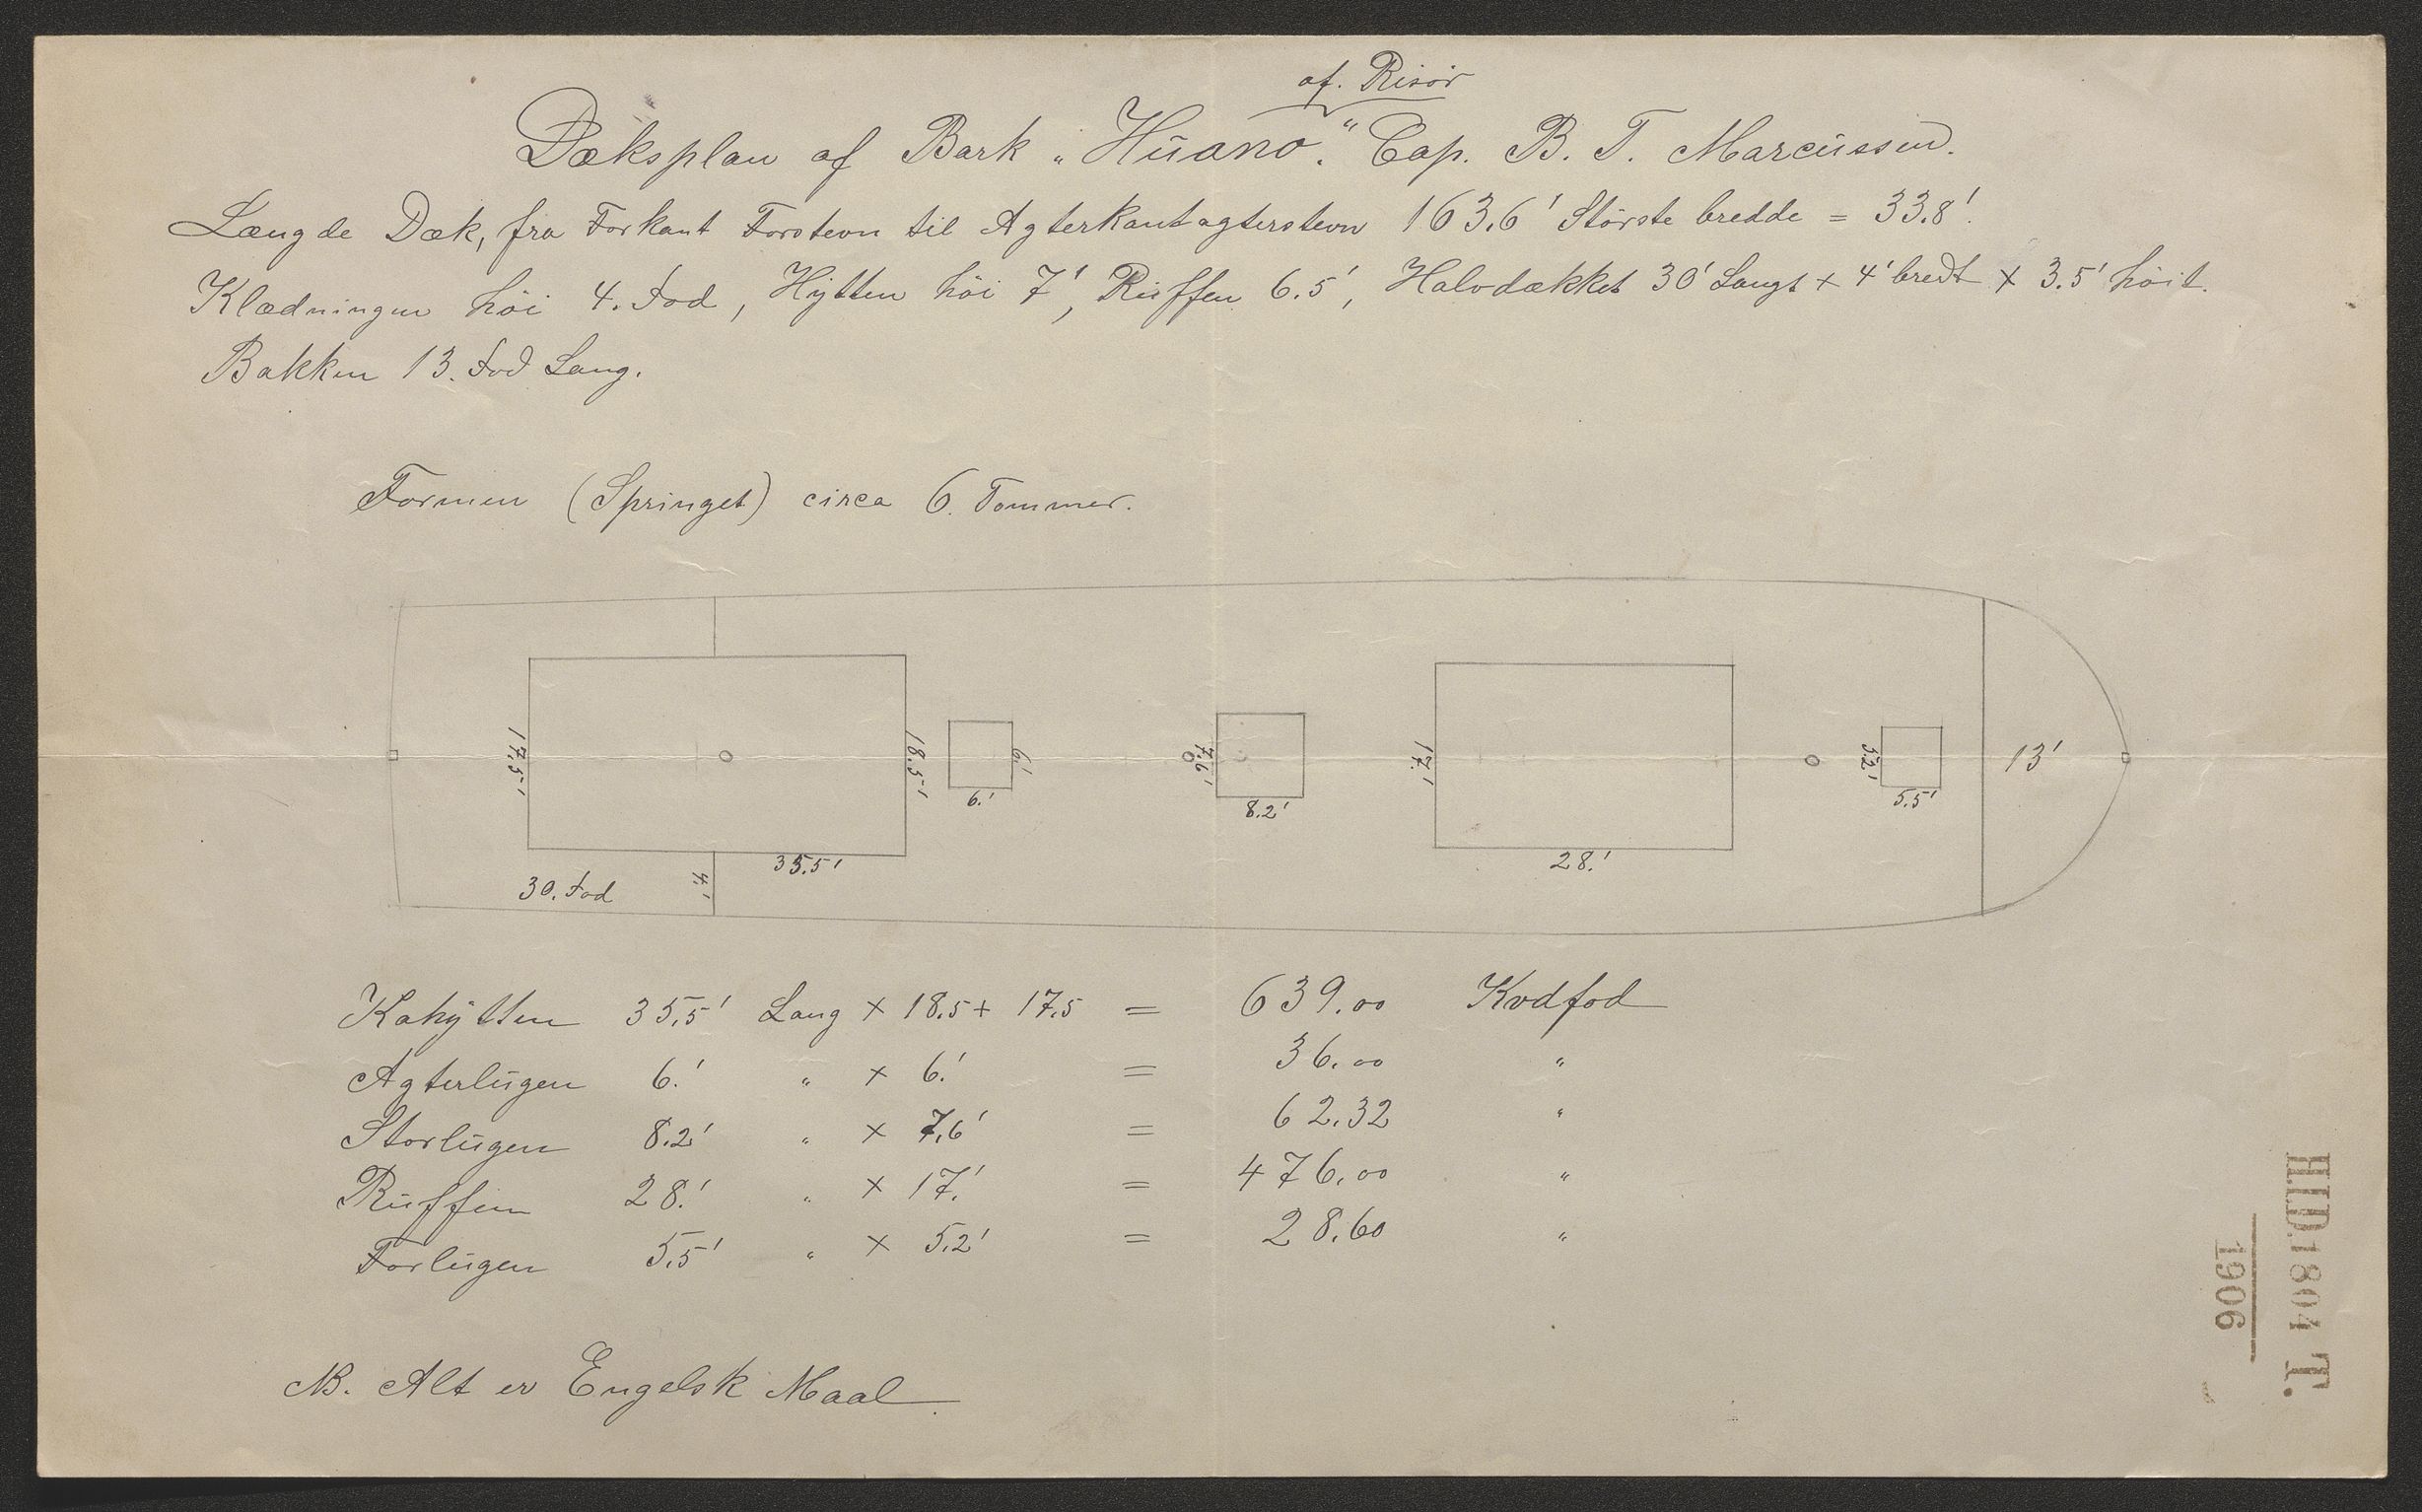 af. Risør
Dæksplan af Bark „Huano.“ Cap. B. T. Marcussen.
Længde Dæk, fra Forkant Forstevn til Agterkant agterstevn 163.6' Störste bredde = 33.8'.
Klædningen höi 4. Fod, Hytten höi 7', Ruffen 6.5', Halvdækket 30' Langt + 4' bredt × 3.5' höit.
Bakken 13. Fod Lang.
Formen (Springet) circa 6. Tommer.
17.5'
18.5'
6.'
6.'
7.6'
8.2'
17.'
3.2'
5.5'
13'
35.5'
28.'
30. Fod
4.'
Kahytten 35,5' Lang × 18.5 + 17.5 = 639.00 Kvdfod
Agterlugen 6.' „ × 6.' = 36.00 „
Storlugen 8.2' „ × 7,6' = 62.32 „
Ruffen 28.' „ × 17.' = 476.00 „
Forlugen 5,5' „ × 5.2' = 28.60 „
NB. Alt er Engelsk Maal
H.I.D. 1804 T.
1906